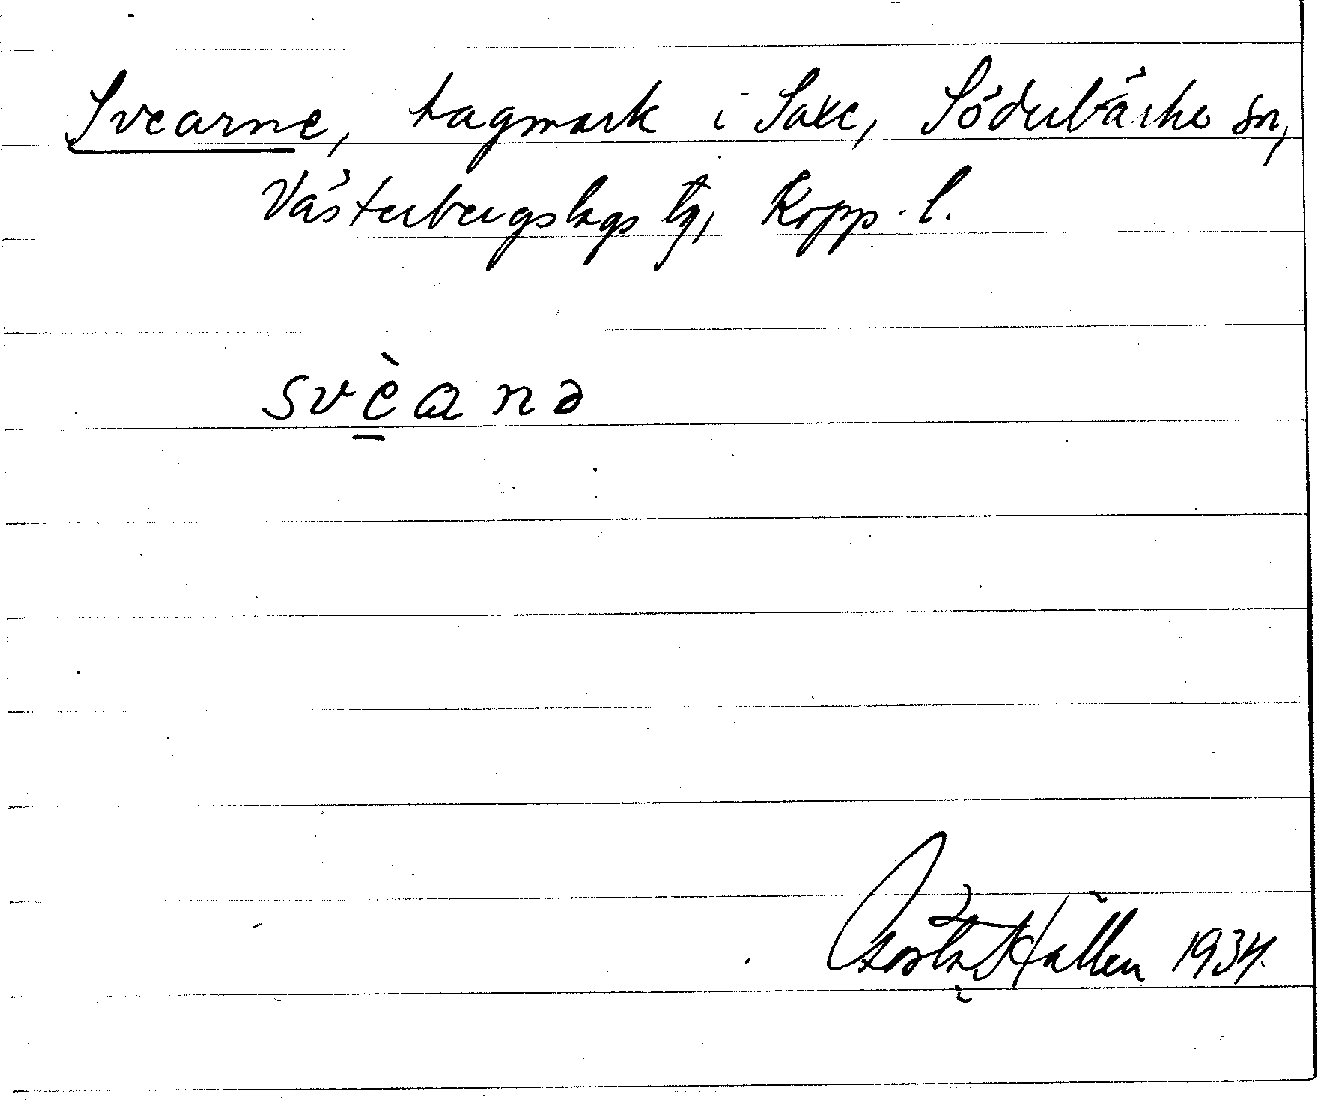 Svearne, hagmark i Saxe, Söderbärke sn,
Västerbergslags tg, Kopp. l.
svèanə
Gösta Hallen 1934.